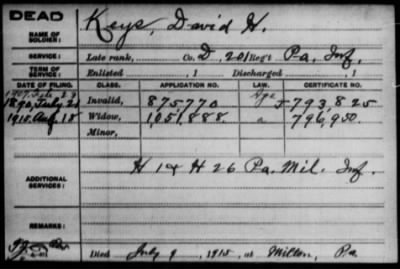 DEAD
NAME OF SOLDIER: Keys, David H.
SERVICE: Late rank, Co. D, 201 Reg't Pa. Inf.
TERM OF SERVICE: Enlisted , 1 Discharged , 1
DATE OF FILING. CLASS. APPLICATION NO. LAW. CERTIFICATE NO.
1907, Feb. 27 Age
1890, July 21 Invalid, 875770 793825
1915, Aug. 18 Widow, 1,051,888 a 796,950
Minor,
ADDITIONAL SERVICES: H 1 & H 26 Pa. Mil. Inf.
REMARKS:
Died July 9, 1915, at Milton, Pa